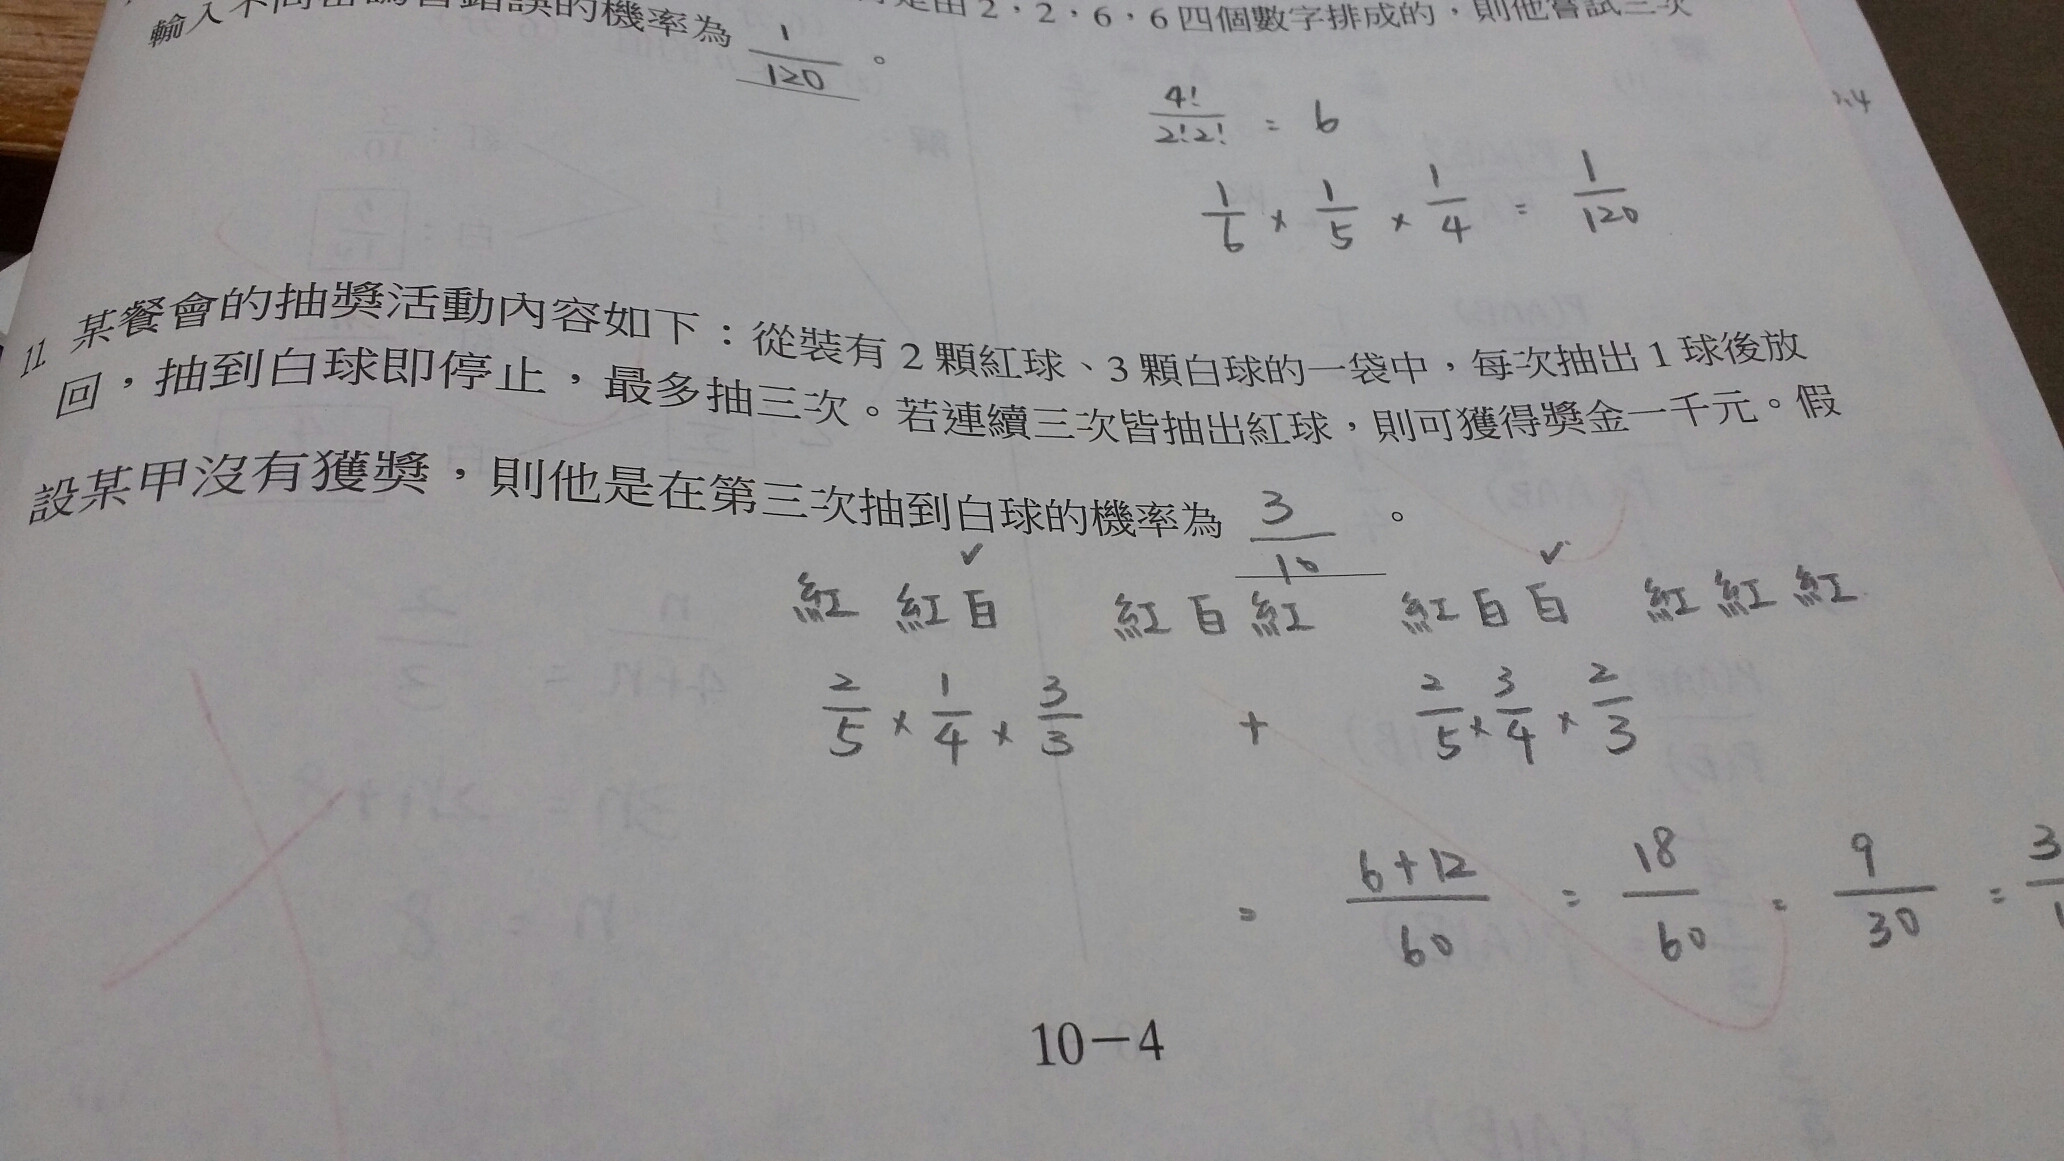 是由2,2,6,6四個數字排成的,則他嘗試三次
輸入不同密碼皆錯誤的機率為 1/120 。
4!/2!2! = 6
1/6 × 1/5 × 1/4 = 1/120
11 某餐會的抽獎活動內容如下:從裝有2顆紅球、3顆白球的一袋中,每次抽出1球後放
回,抽到白球即停止,最多抽三次。若連續三次皆抽出紅球,則可獲得獎金一千元。假
設某甲沒有獲獎,則他是在第三次抽到白球的機率為 3/10 。
紅 紅白 紅白紅 紅白白 紅紅紅
2/5 × 1/4 × 3/3 + 2/5 × 3/4 × 2/3
= 6+12/60 = 18/60 = 9/30 = 3/1
10-4